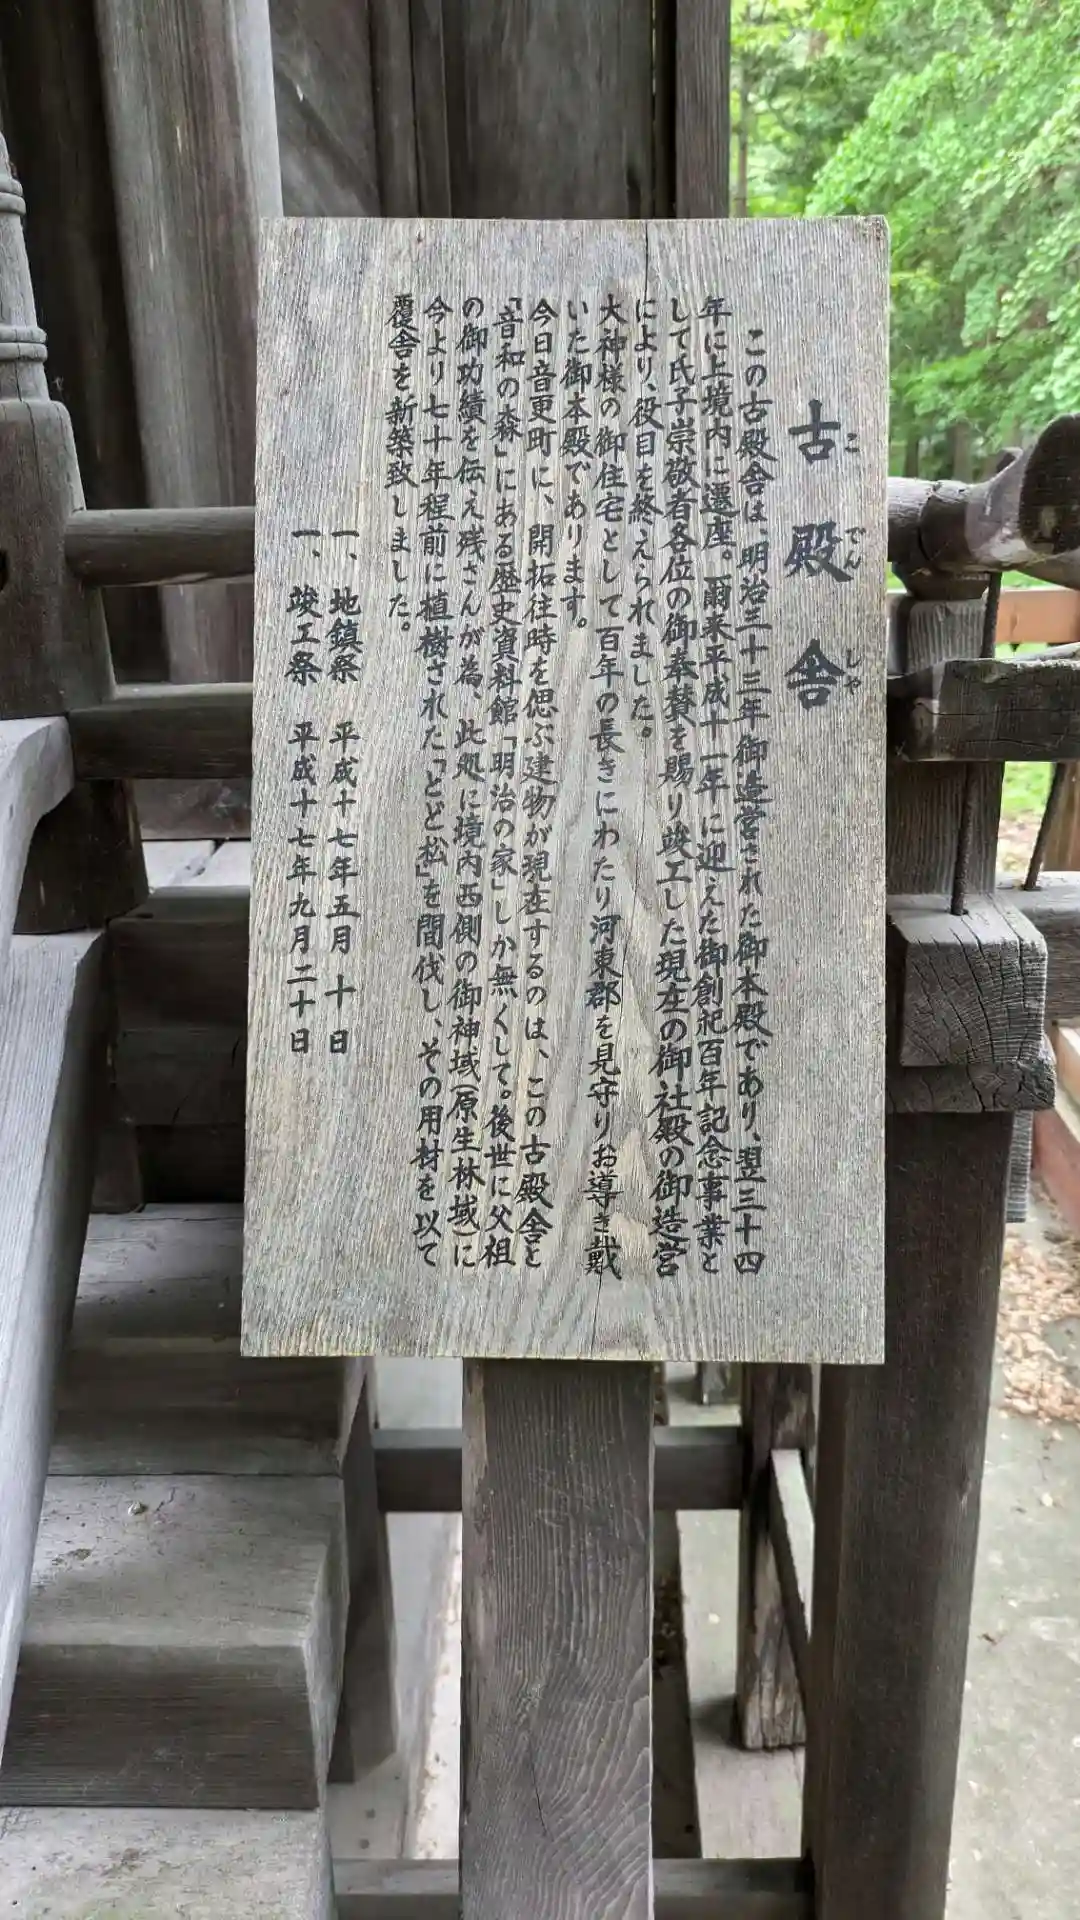 古殿舎
こでんしゃ
この古殿舎は、明治三十三年御造営された御本殿であり、翌三十四
年に上境内に遷座。爾来平成十一年に迎えた御創祀百年記念事業と
して氏子崇敬者各位の御奉賛を賜り竣工した現在の御社殿の御造営
により、役目を終えられました。
大神様の御住宅として百年の長きにわたり河東郡を見守りお導き戴
いた御本殿であります。
今日音更町に、開拓往時を偲ぶ建物が現在するのは、この古殿舎と
「音和の森」にある歴史資料館「明治の家」しか無くして。後世に父祖
の御功績を伝え残さんが為、此処に境内西側の御神域(原生林域)に
今より七十年程前に植樹された「とど松」を間伐し、その用材を以て
覆舎を新築致しました。
一、地鎮祭 平成十七年五月 十日
一、竣工祭 平成十七年九月二十日